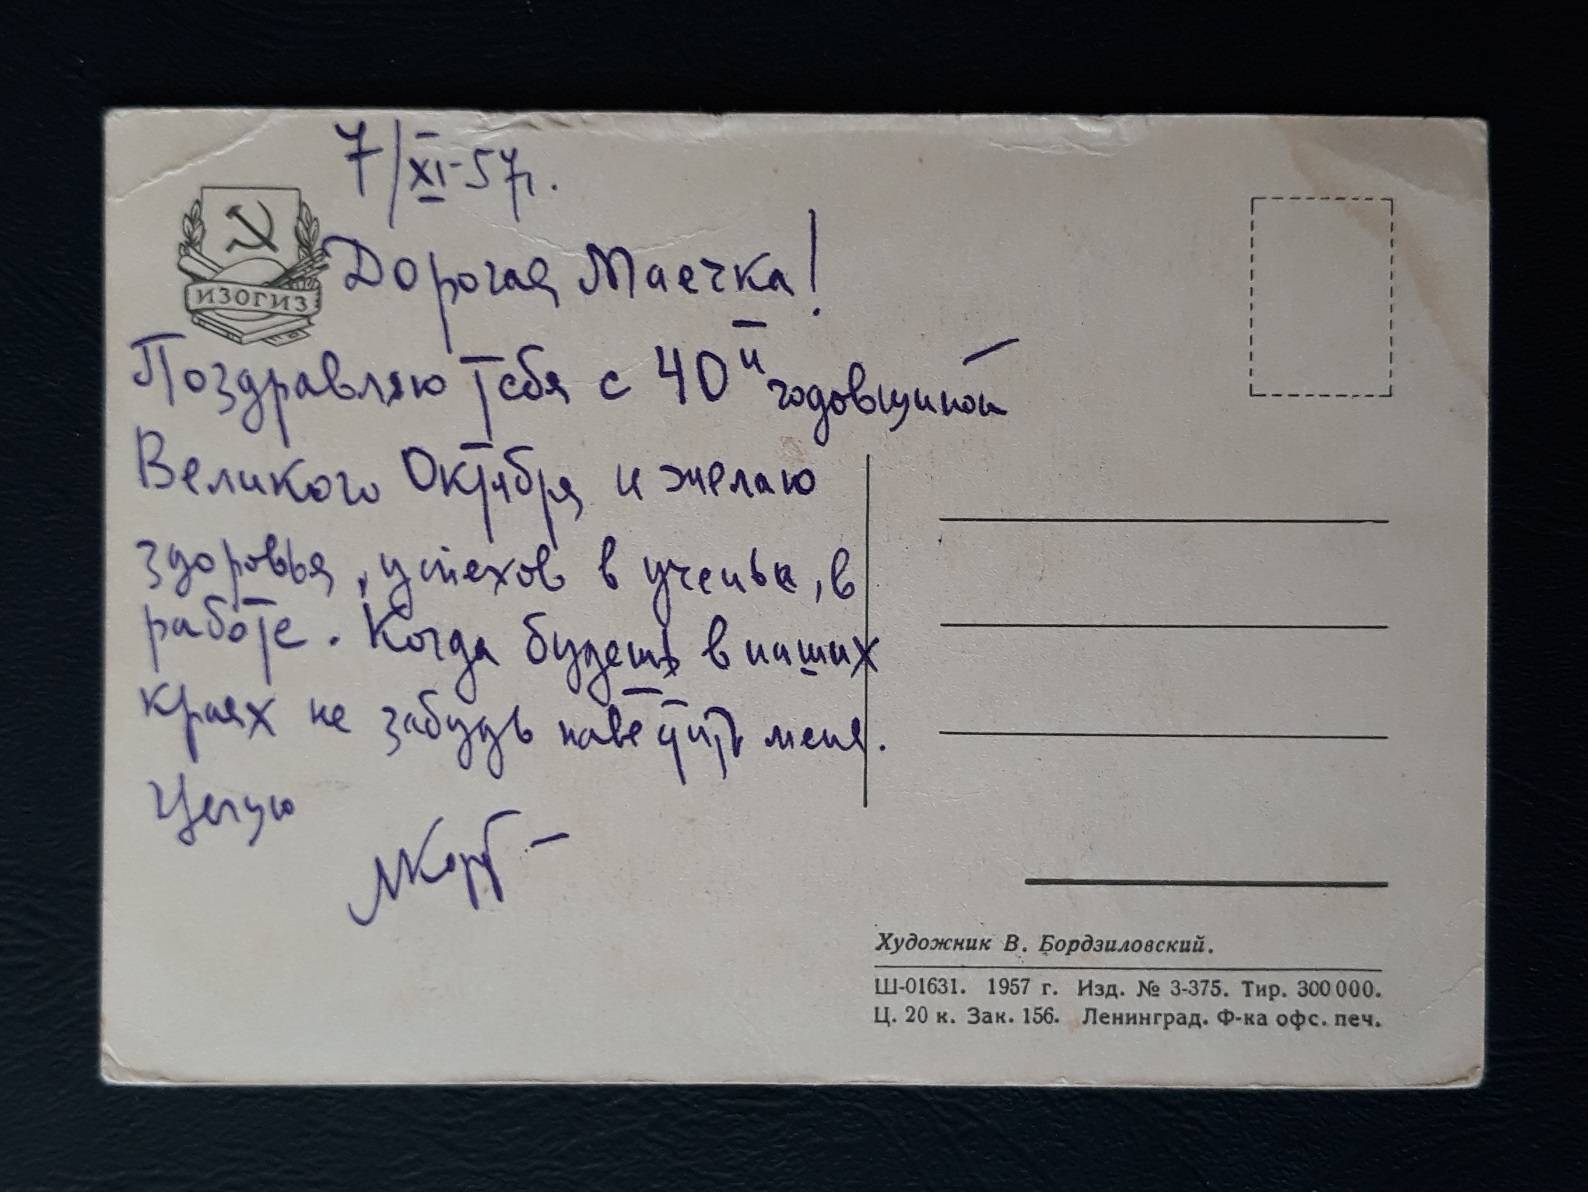 7/XI-57г.
ИЗОГИЗ
Дорогая Маечка!
Поздравляю тебя с 40й годовщиной
Великого Октября и желаю
здоровья, успехов в ученьи, в
работе. Когда будешь в наших
краях не забудь навестить меня.
Целую
Художник В. Бордзиловский.
Ш-01631. 1957 г. Изд. № 3-375. Тир. 300 000.
Ц. 20 к. Зак. 156. Ленинград. Ф-ка офс. печ.